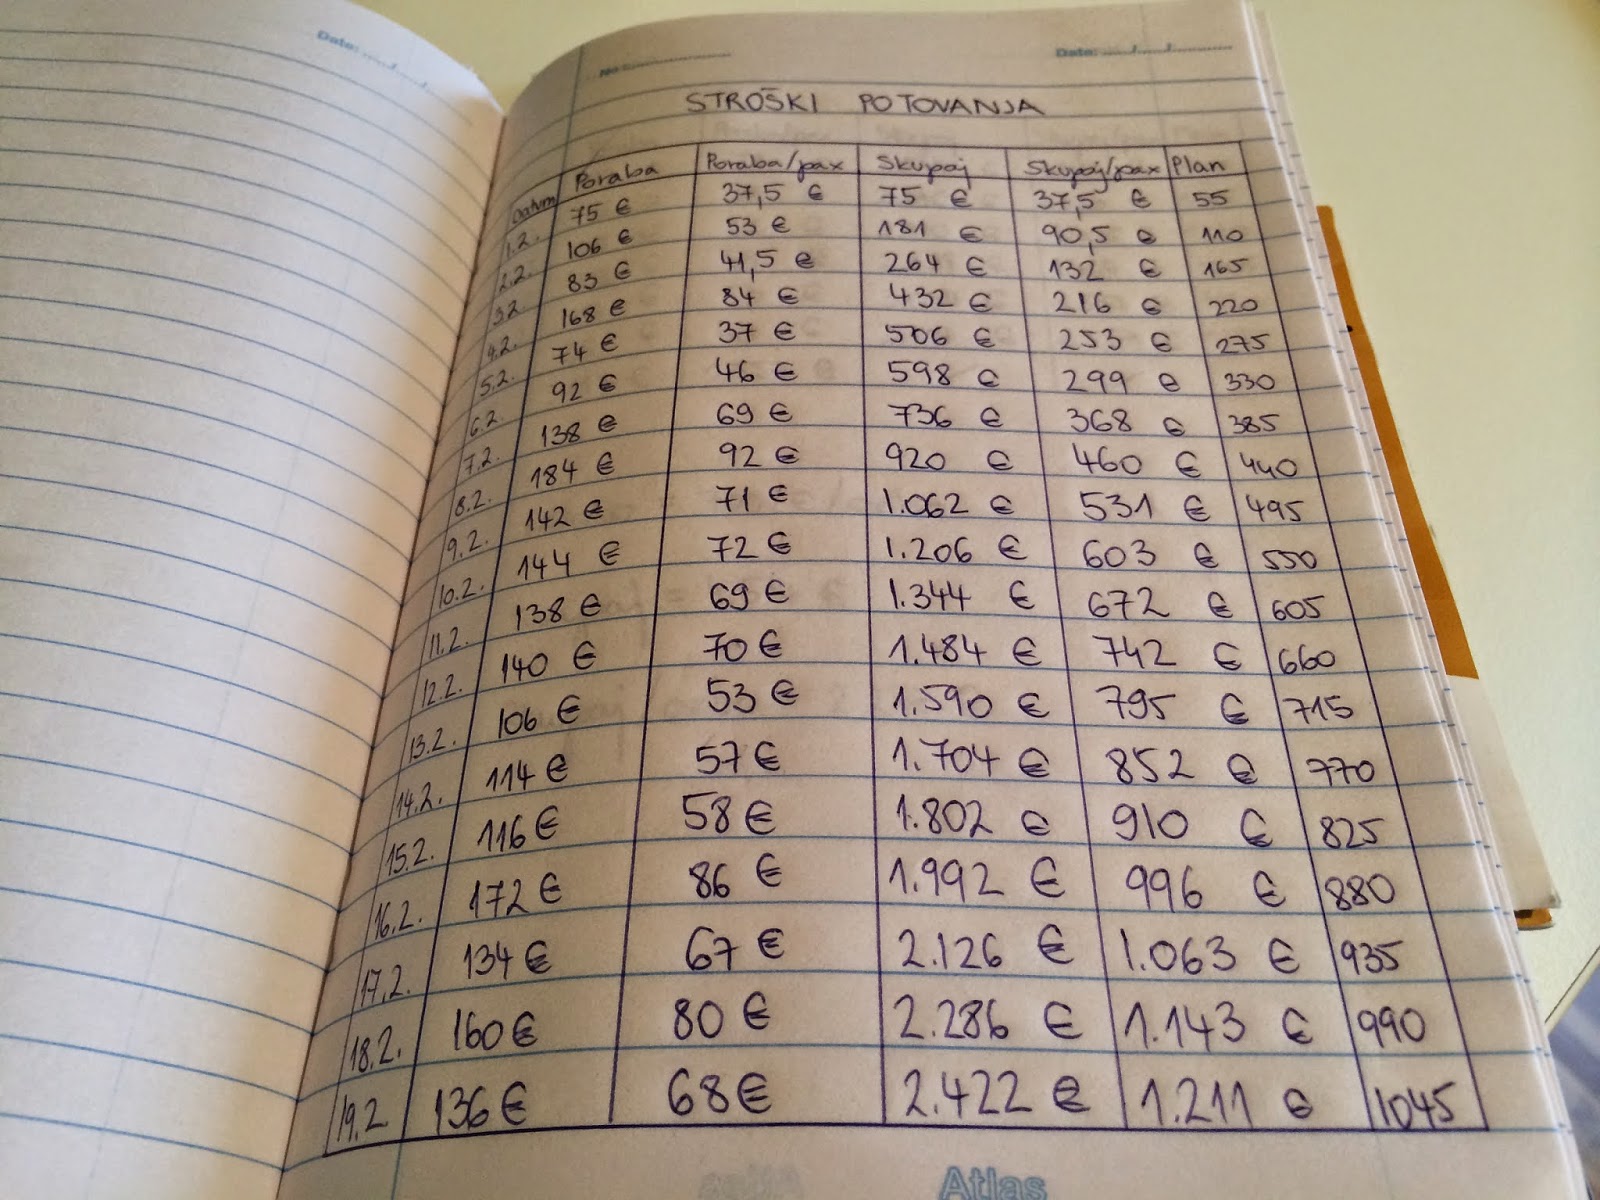 Date: ..../..../........
No:................ Date: ..../..../........
STROŠKI POTOVANJA
Datum Poraba Poraba/pax Skupaj Skupaj/pax Plan
1.2. 75 € 37,5 € 75 € 37,5 € 55
2.2. 106 € 53 € 181 € 90,5 € 110
3.2. 83 € 41,5 € 264 € 132 € 165
4.2. 168 € 84 € 432 € 216 € 220
5.2. 74 € 37 € 506 € 253 € 275
6.2. 92 € 46 € 598 € 299 € 330
7.2. 138 € 69 € 736 € 368 € 385
8.2. 184 € 92 € 920 € 460 € 440
9.2. 142 € 71 € 1.062 € 531 € 495
10.2. 144 € 72 € 1.206 € 603 € 550
11.2. 138 € 69 € 1.344 € 672 € 605
12.2. 140 € 70 € 1.484 € 742 € 660
13.2. 106 € 53 € 1.590 € 795 € 715
14.2. 114 € 57 € 1.704 € 852 € 770
15.2. 116 € 58 € 1.802 € 910 € 825
16.2. 172 € 86 € 1.992 € 996 € 880
17.2. 134 € 67 € 2.126 € 1.063 € 935
18.2. 160 € 80 € 2.286 € 1.143 € 990
19.2. 136 € 68 € 2.422 € 1.211 € 1045
Atlas